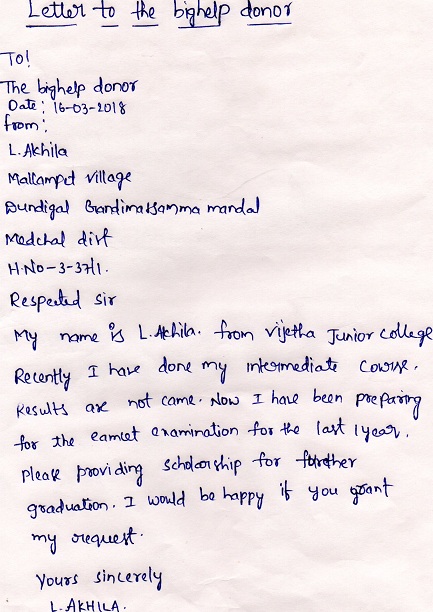 Letter to the bighelp donor
To!
The bighelp donor
Date: 16-03-2018
from:
L. Akhila
Mallampet village
Dundigal Gandimaisamma mandal
Medchal dist
H.No-3-37/1.
Respected sir
My name is L.Akhila. from vijetha Junior college
Recently I have done my intermediate course.
Results are not came. Now I have been preparing
for the eamcet examination for the last 1 year.
please providing scholarship for further
graduation. I would be happy if you grant
my request.
Yours sincerely
L. AKHILA.